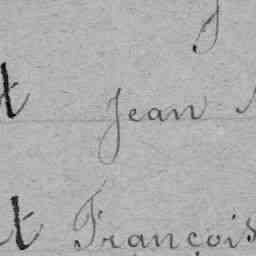 t Jean
t François